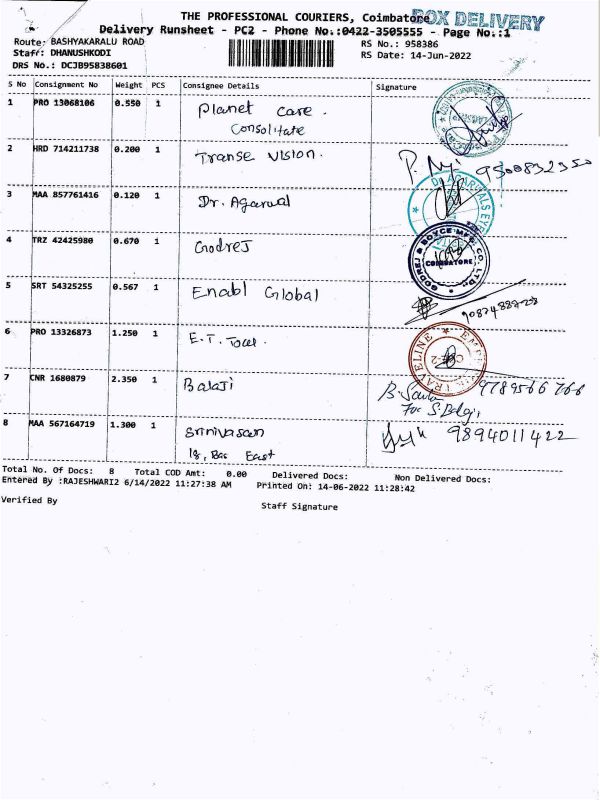 THE PROFESSIONAL COURIERS, Coimbatore BOX DELIVERY
Delivery Runsheet - PC2 - Phone No.:0422-3505555 - Page No.:1
Route: BASHYAKARALU ROAD RS No.: 958386
Staff: DHANUSHKODI RS Date: 14-Jun-2022
DRS No.: DCJB95838601
S No Consignment No Weight PCS Consignee Details Signature
1 PRO 13068106 0.550 1 Planet Care.
Consolitate
2 HRD 714211738 0.200 1 Transe Vision. 9500832350
3 MAA 857761416 0.120 1 Dr. Agarwal
4 TRZ 42425980 0.670 1 Godrej
GODREJ & BOYCE MFG. CO. LTD.
COIMBATORE
5 SRT 54325255 0.567 1 Enabl Global
6 PRO 13326873 1.250 1 E.T. Toer.
TRAVELINE
7 CNR 1680879 2.350 1 Balaji 9789566766
For
8 MAA 567164719 1.300 1 Srinivasan 9894011422
East
Total No. Of Docs: 8 Total COD Amt: 0.00 Delivered Docs: Non Delivered Docs:
Entered By :RAJESHWARI2 6/14/2022 11:27:38 AM Printed On: 14-06-2022 11:28:42
Verified By Staff Signature